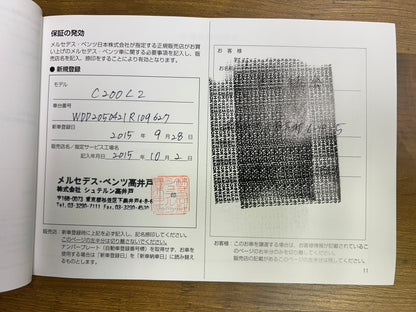 保証の発効
メルセデス・ベンツ日本株式会社が指定する正規販売店がお買
い上げのメルセデス・ベンツ車に関する必要事項を記入し、販
売店名を記入、捺印をすることにより有効となります。
● 新規登録
モデル
C200 L2
車台番号
WDD2050421R109627
新車登録日
2015 年 9 月 28 日
販売店名／指定サービス工場名
記入年月日 2015 年 10 月 2 日
メルセデス・ベンツ高井戸
株式会社 シュテルン高井戸
〒168-0073 東京都杉並区下高井戸4-6-6
Tel. 03-3290-7111 Fax. 03-3290-
販売店：新車登録時に上記を必ず記入し、記名捺印してください。
このページの左半分は切り離さないでください。
ナンバープレート（自動車登録番号標）を取得せず、お車を
使用する場合は「新車登録日」を「新車納車日」に読み替え
るものとします。
お 客 様
お客様：このお車を譲渡する場合は、お客様情報が記載されているこ
のページの右半分のみを切り取り、
販売店の記載があるこのページの左半分は残してください。
11